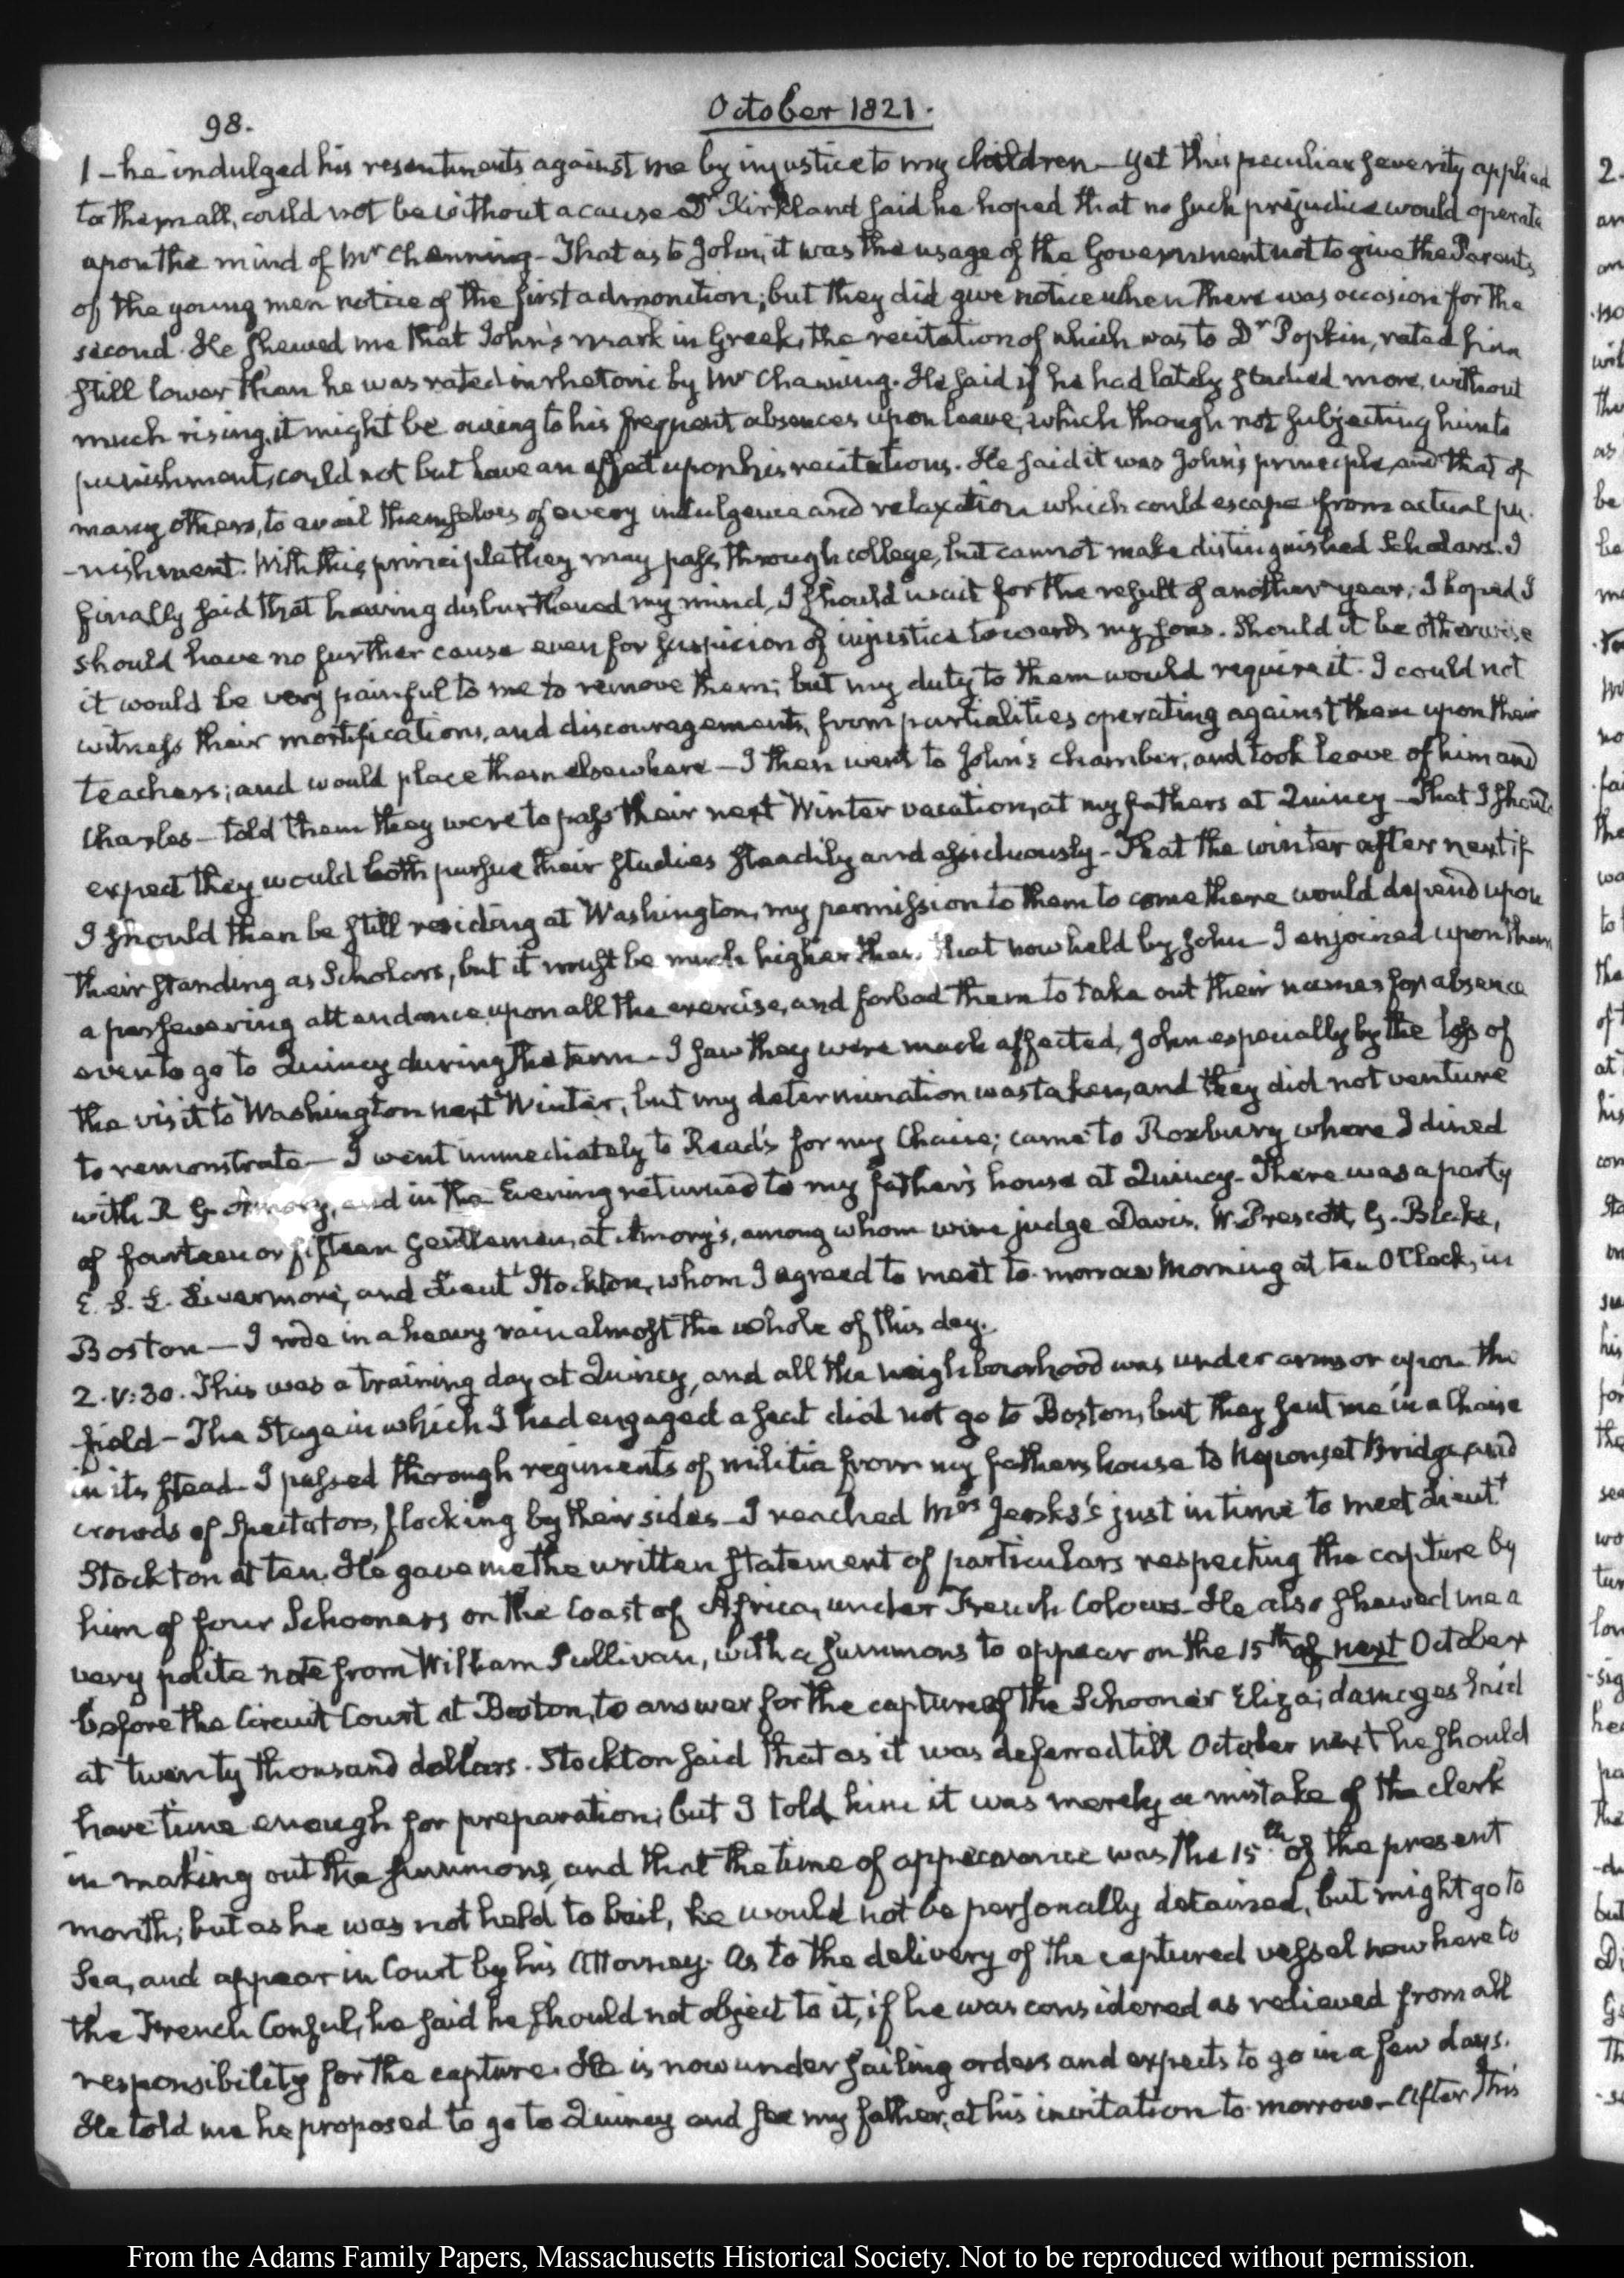 98.
October 1821.
1 – he indulged his resentments against me by injustice to my children – yet this peculiar severity applied
to them all, could not be without a cause – Dr Kirkland said he hoped that no such prejudice would operate
upon the mind of Mr Channing – That as to John, it was the usage of the Government not to give the Parents
of the young men notice of the first admonition; but they did give notice when there was occasion for the
second. He shewed me that John's mark in Greek, the recitation of which was to Dr Popkin, rated him
still lower than he was rated in rhetoric by Mr Channing. He said if he had lately studied more, without
much rising, it might be owing to his frequent absences upon leave, which though not subjecting him to
punishment, could not but have an effect upon his recitations. He said it was John's principle, and that of
many others, to avail themselves of every indulgence and relaxation which could escape from actual pu-
-nishment. With this principle they may pass through college, but cannot make distinguished Scholars. I
finally said that having disburthened my mind, I should wait for the result of another year; I hoped I
should have no further cause even for suspicion of injustice towards my sons. Should it be otherwise
it would be very painful to me to remove them; but my duty to them would require it. I could not
witness their mortifications, and discouragements, from partialities operating against them upon their
teachers; and would place them elsewhere – I then went to John's chamber, and took leave of him and
Charles – told them they were to pass their next Winter vacation, at my fathers at Quincy – That I should
expect they would both pursue their studies steadily and assiduously – That the winter after next if
I should then be still residing at Washington, my permission to them to come there would depend upon
their standing as Scholars, but it must be much higher than that now held by John – I enjoined upon them
a persevering attendance upon all the exercise, and forbad them to take out their names for absence
even to go to Quincy during the term – I saw they were much affected, John especially by the loss of
the visit to Washington next Winter, but my determination was taken, and they did not venture
to remonstrate – I went immediately to Read's for my Chaise; came to Roxbury where I dined
with R G Amory, and in the Evening returned to my father's house at Quincy – There was a party
of fourteen or fifteen Gentlemen, at Amory's, among whom were judge Davis, W. Prescott, G. Blake,
E. S. L. Livermore, and Lieutt Stockton, whom I agreed to meet to-morrow Morning at ten O'Clock, in
Boston – I rode in a heavy rain almost the whole of this day.
2. V:30. This was a training day at Quincy, and all the neighbourhood was under arms or upon the
field – The Stage in which I had engaged a seat did not go to Boston, but they sent me in a Chaise
in its stead – I passed through regiments of militia from my fathers house to Neponset Bridge, and
crowds of Spectators, flocking by their sides – I reached Mrs Jenks's just in time to meet Lieutt
Stockton at ten. He gave me the written statement of particulars respecting the capture by
him of four Schooners on the Coast of Africa, under French Colours – He also shewed me a
very polite note from William Sullivan, with a summons to appear on the 15th of next October
before the Circuit Court at Boston, to answer for the capture of the Schooner Eliza; damages laid
at twenty thousand dollars. Stockton said that as it was deferred till October next he should
have time enough for preparation; but I told him it was merely a mistake of the clerk
in making out the summons, and that the time of appearance was the 15th of the present
month; but as he was not held to bail, he would not be personally detained, but might go to
Sea, and appear in Court by his Attorney. As to the delivery of the captured vessel now here to
the French Consul, he said he should not object to it, if he was considered as relieved from all
responsibility for the capture. He is now under sailing orders and expects to go in a few days.
He told me he proposed to go to Quincy and see my father, at his invitation to-morrow – After this
From the Adams Family Papers, Massachusetts Historical Society. Not to be reproduced without permission.